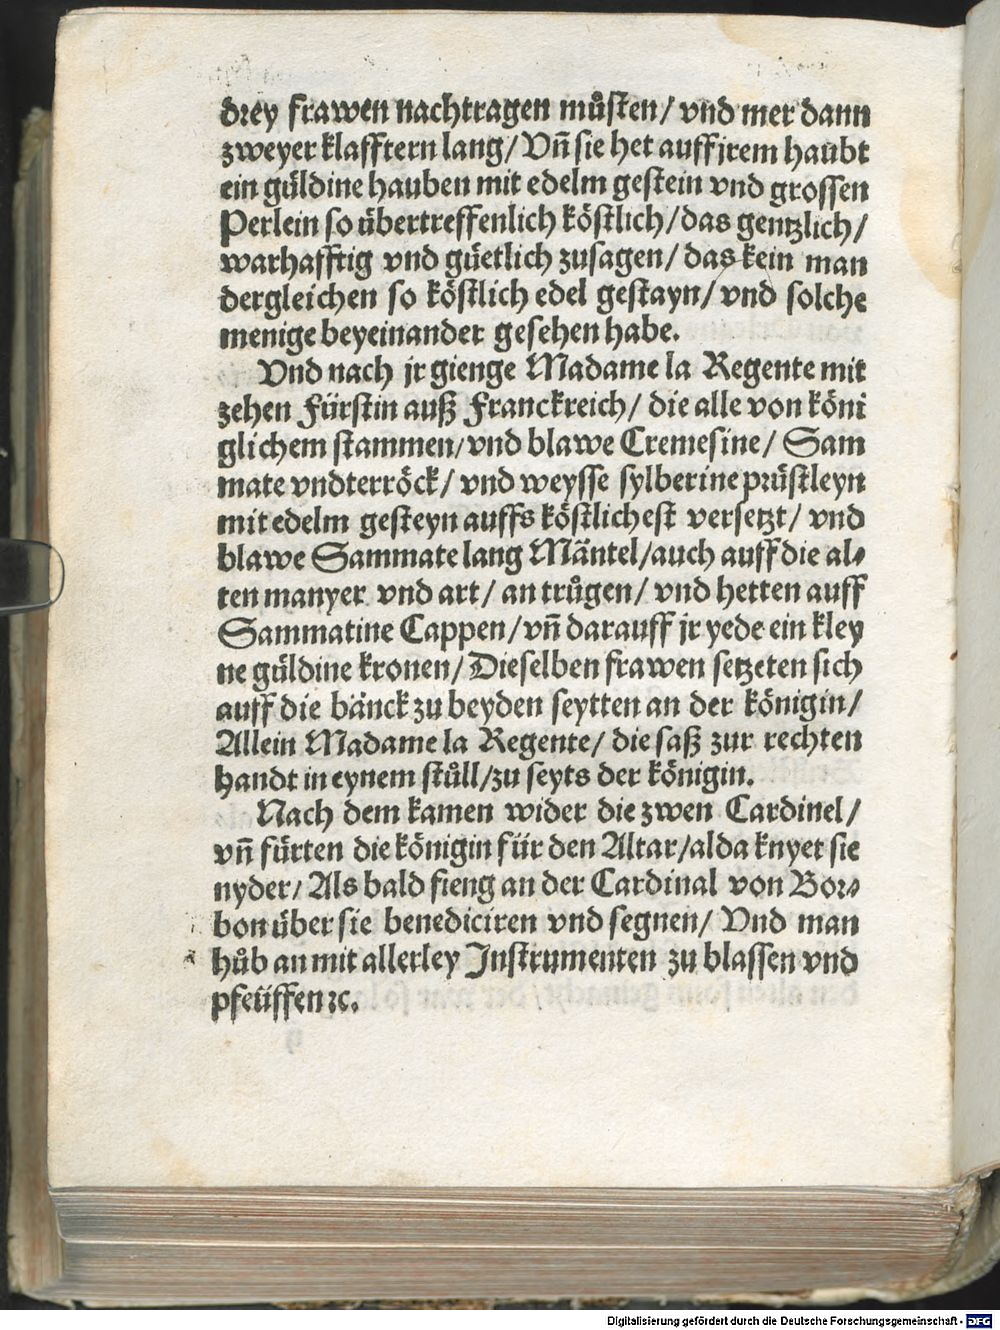 drey frawen nachtragen můſten/ vnd mer dann
zweyer klafftern lang/ Vñ ſie het auff jrem haubt
ein güldine hauben mit edelm geſtein vnd groſſen
Perlein ſo übertreffenlich köſtlich/ das gentzlich/
warhafftig vnd güetlich zuſagen/ das kein man
dergleichen ſo köſtlich edel geſtayn/ vnd ſolche
menige beyeinander geſehen habe.
Vnd nach jr gienge Madame la Regente mit
zehen Fürſtin auß Franckreich/ die alle von köni
glichem ſtammen/ vnd blawe Cremeſine/ Sam
mate vndterröck/ vnd weyſſe ſylberine prüſtleyn
mit edelm geſteyn auffs köſtlicheſt verſetzt/ vnd
blawe Sammate lang Mäntel/ auch auff die al⸗
ten manyer vnd art/ an trůgen/ vnd hetten auff
Sammatine Cappen/ vñ darauff jr yede ein kley
ne güldine kronen/ Dieſelben frawen ſetzeten ſich
auff die bänck zu beyden ſeytten an der königin/
Allein Madame la Regente/ die ſaß zur rechten
handt in eynem ſtůll/ zu ſeyts der königin.
Nach dem kamen wider die zwen Cardinel/
vñ fürten die königin für den Altar/ alda knyet ſie
nyder/ Als bald fieng an der Cardinal von Bor⸗
bon über ſie benediciren vnd ſegnen/ Vnd man
hůb an mit allerley Inſtrumenten zu blaſſen vnd
pfeüffen ꝛc.
Digitalisierung gefördert durch die Deutsche Forschungsgemeinschaft - DFG